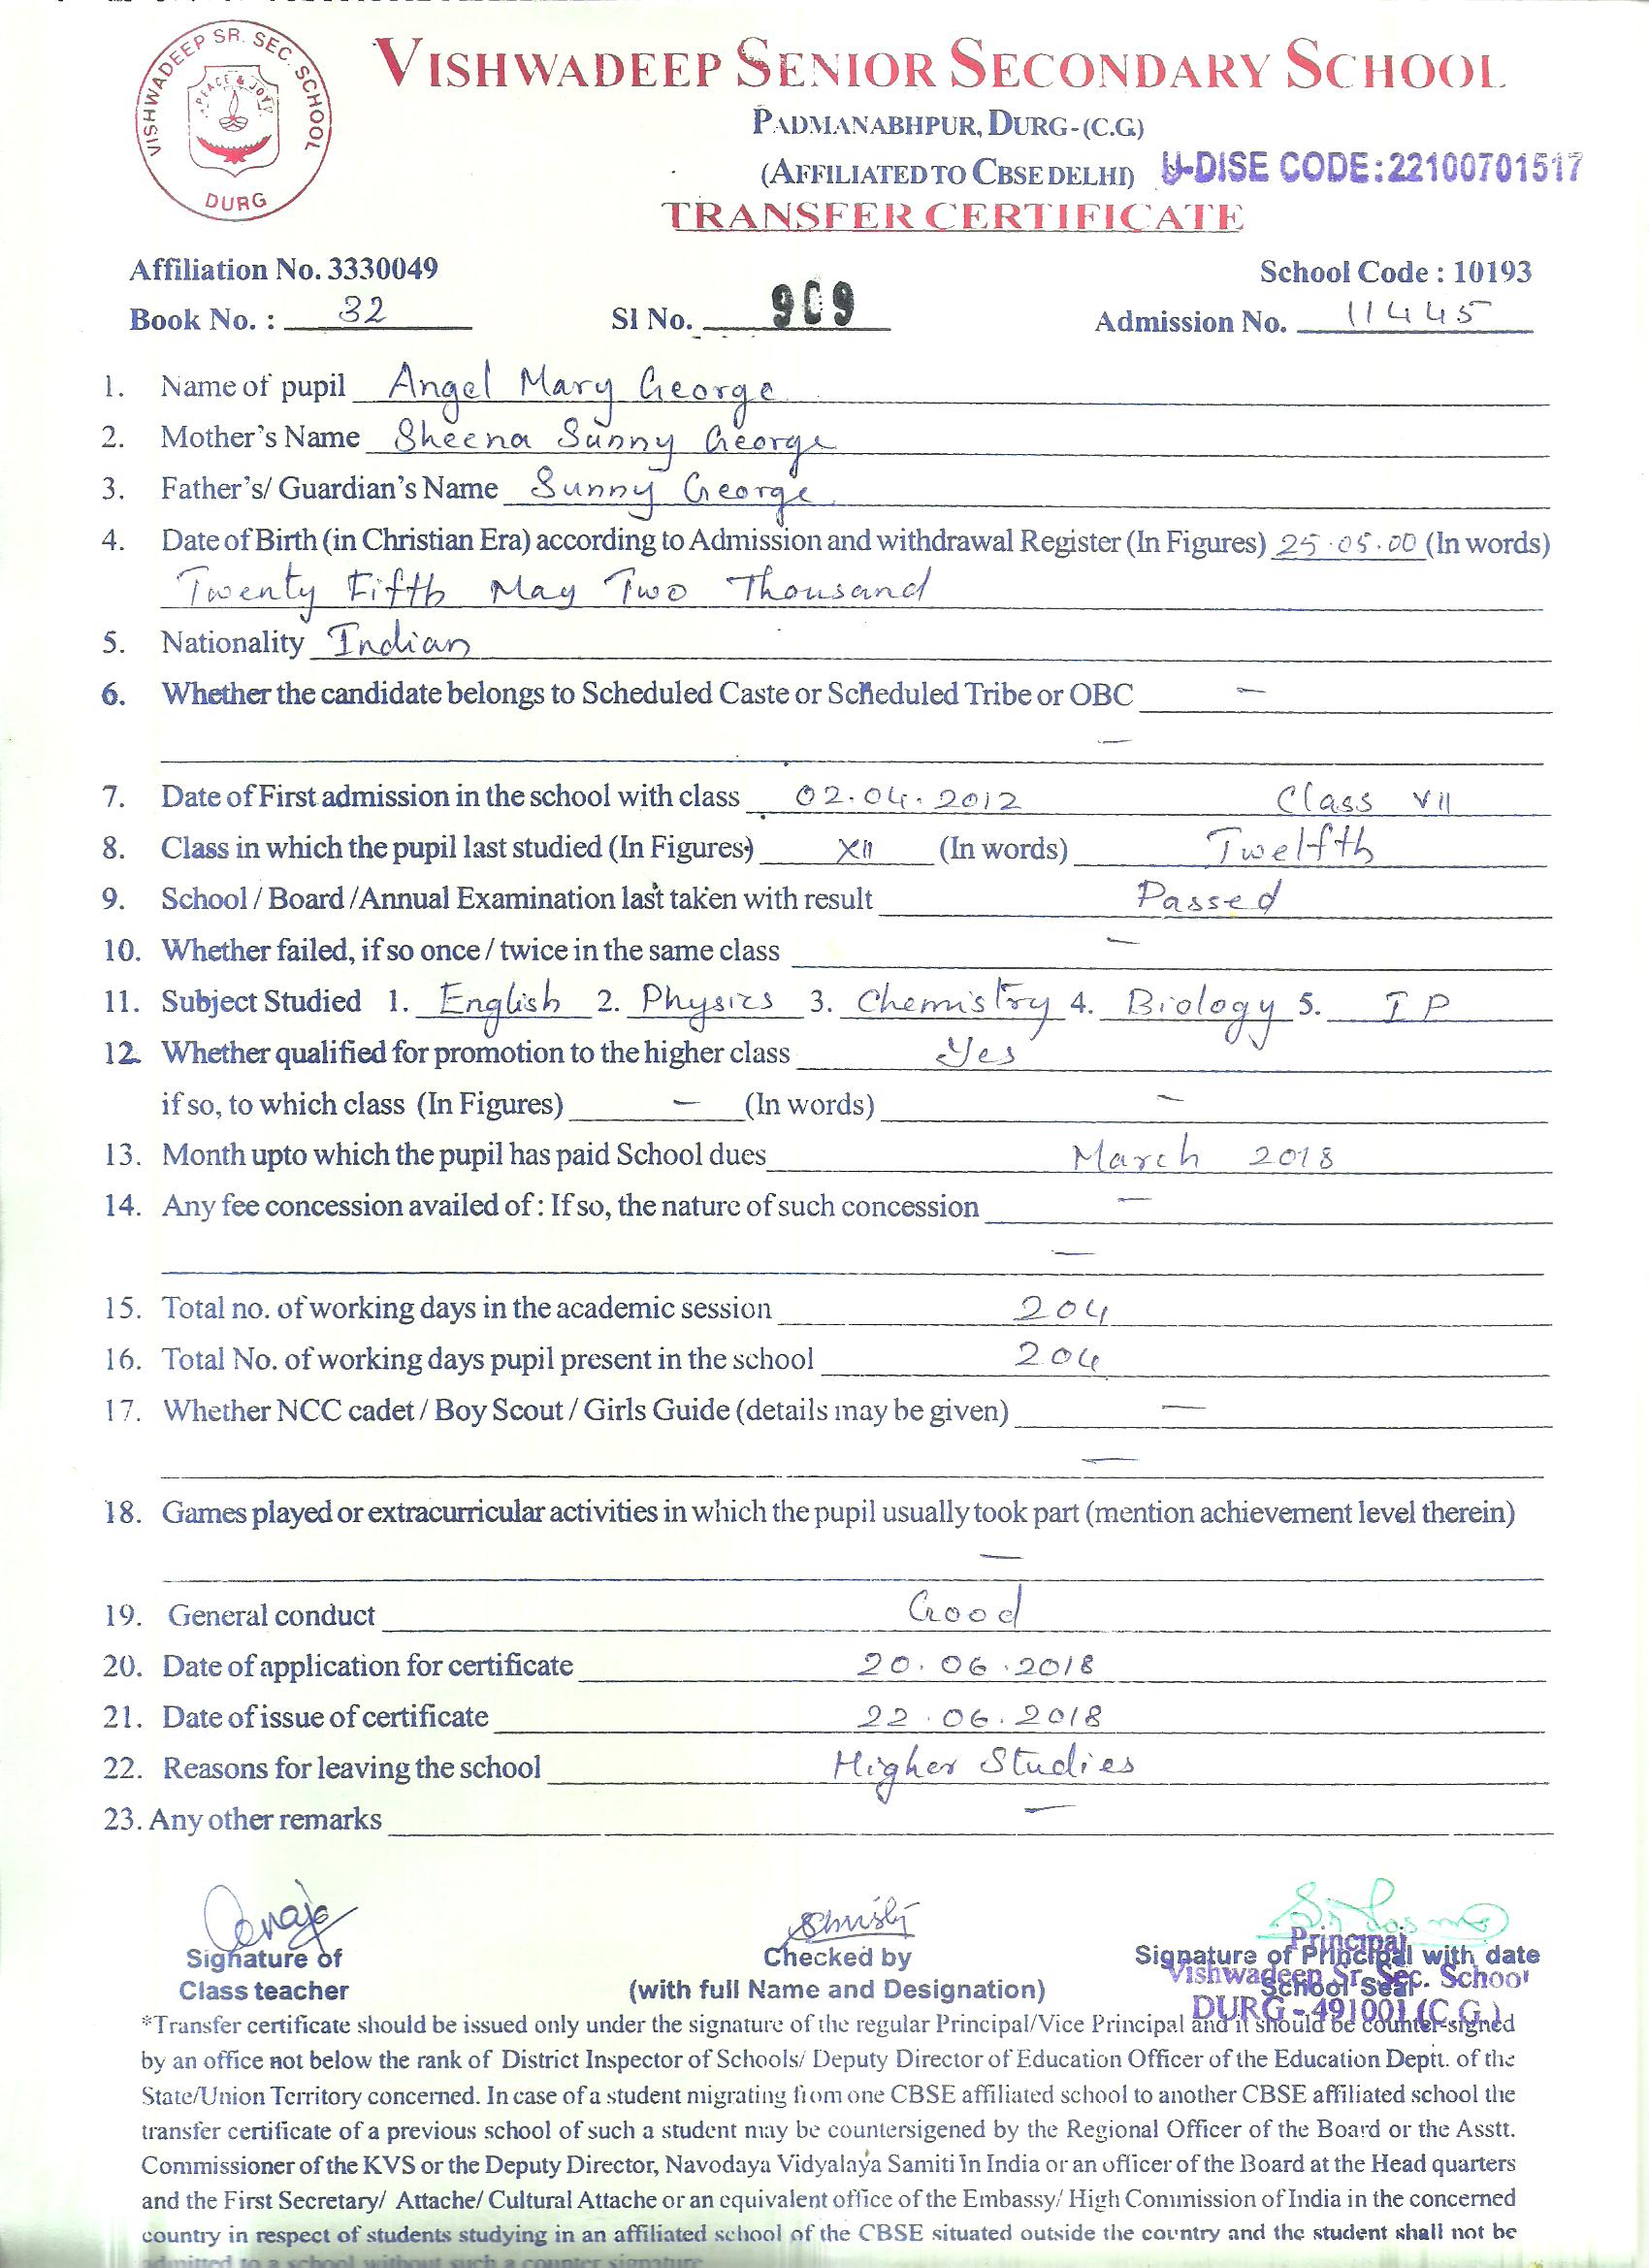 VISHWADEEP SR. SEC. SCHOOL
PEACE & JOY
DURG
VISHWADEEP SENIOR SECONDARY SCHOOL
PADMANABHPUR, DURG-(C.G)
(AFFILIATED TO CBSE DELHI) U-DISE CODE:22100701517
TRANSFER CERTIFICATE
Affiliation No. 3330049 School Code : 10193
Book No. : 32 Sl No. 909 Admission No. 11445
1. Name of pupil Angel Mary George
2. Mother's Name Sheena Sunny George
3. Father's/ Guardian's Name Sunny George
4. Date of Birth (in Christian Era) according to Admission and withdrawal Register (In Figures) 25.05.00 (In words)
Twenty Fifth May Two Thousand
5. Nationality Indian
6. Whether the candidate belongs to Scheduled Caste or Scheduled Tribe or OBC —
—
7. Date of First admission in the school with class 02.04.2012 Class VII
8. Class in which the pupil last studied (In Figures) XII (In words) Twelfth
9. School / Board /Annual Examination last taken with result Passed
10. Whether failed, if so once / twice in the same class —
11. Subject Studied 1. English 2. Physics 3. Chemistry 4. Biology 5. IP
12. Whether qualified for promotion to the higher class Yes
if so, to which class (In Figures) — (In words) —
13. Month upto which the pupil has paid School dues March 2018
14. Any fee concession availed of : If so, the nature of such concession —
—
15. Total no. of working days in the academic session 204
16. Total No. of working days pupil present in the school 204
17. Whether NCC cadet / Boy Scout / Girls Guide (details may be given) —
—
18. Games played or extracurricular activities in which the pupil usually took part (mention achievement level therein)
—
19. General conduct Good
20. Date of application for certificate 20.06.2018
21. Date of issue of certificate 22.06.2018
22. Reasons for leaving the school Higher Studies
23. Any other remarks —
Signature of Checked by Signature of Principal with date
Principal
Class teacher (with full Name and Designation) School Seal
Vishwadeep Sr. Sec. School
DURG - 491001 (C.G.)
*Transfer certificate should be issued only under the signature of the regular Principal/Vice Principal and it should be counter-signed
by an office not below the rank of District Inspector of Schools/ Deputy Director of Education Officer of the Education Deptt. of the
State/Union Territory concerned. In case of a student migrating from one CBSE affiliated school to another CBSE affiliated school the
transfer certificate of a previous school of such a student may be countersigened by the Regional Officer of the Board or the Asstt.
Commissioner of the KVS or the Deputy Director, Navodaya Vidyalaya Samiti in India or an officer of the Board at the Head quarters
and the First Secretary/ Attache/ Cultural Attache or an equivalent office of the Embassy/ High Commission of India in the concerned
country in respect of students studying in an affiliated school of the CBSE situated outside the country and the student shall not be
admitted to a school without such a counter signature